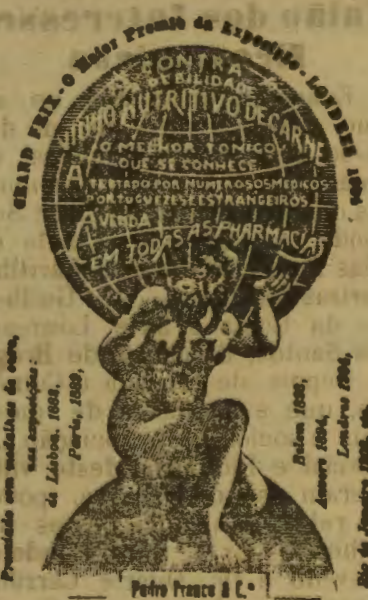 GRAND PRIX - O Maior Premio da Exposição - LONDRES 1904
CONTRA
A DEBILIDADE
VINHO NUTRITIVO DE CARNE
O MELHOR TONICO
QUE SE CONHECE
ATTESTADO POR NUMEROSOS MEDICOS
PORTUGUEZES E ESTRANGEIROS
A VENDA
EM TODAS AS PHARMACIAS
Premiado com medalhas de ouro,
nas exposições:
de Lisboa, 1888,
Paris, 1889,
Belem 1893,
Anvers 1894,
Londres 1904,
Rio de Janeiro
Pedro Franco & C.ª